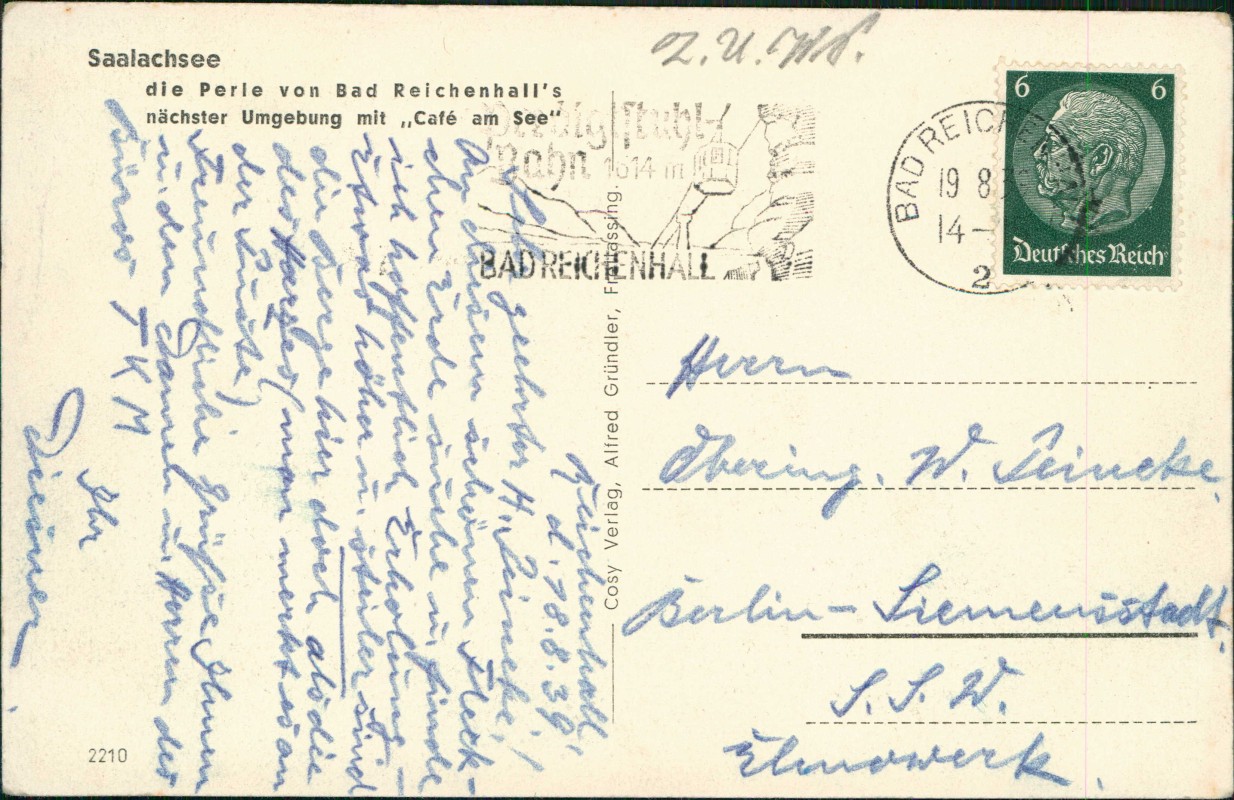 Saalachsee
die Perle von Bad Reichenhall's
nächster Umgebung mit „Café am See"
Z. U.
Predigtstuhl-
Bahn 1614 m
BAD REICHENHALL
BAD REICHENHALL
19 8
14-
2
6 6
Deutsches Reich
Cosy Verlag, Alfred Gründler, Freilassing.
Reichenhall,
d. 18.8.39.
Sehr geehrter H. Reincke!
An diesem schönen Fleck-
chen Erde suche u. finde
ich hoffentlich Erholung –
Etwas höher u. steiler sind
die Berge hier doch als die
des Harzes (man merkt es an
der Puste)
Freundliche Grüße Ihnen
u. den Damen u. Herren des
Büros TKM
Ihr
Herrn
Obering. W. Reincke.
Berlin – Siemensstadt.
S. S. W.
Elmowerk.
2210